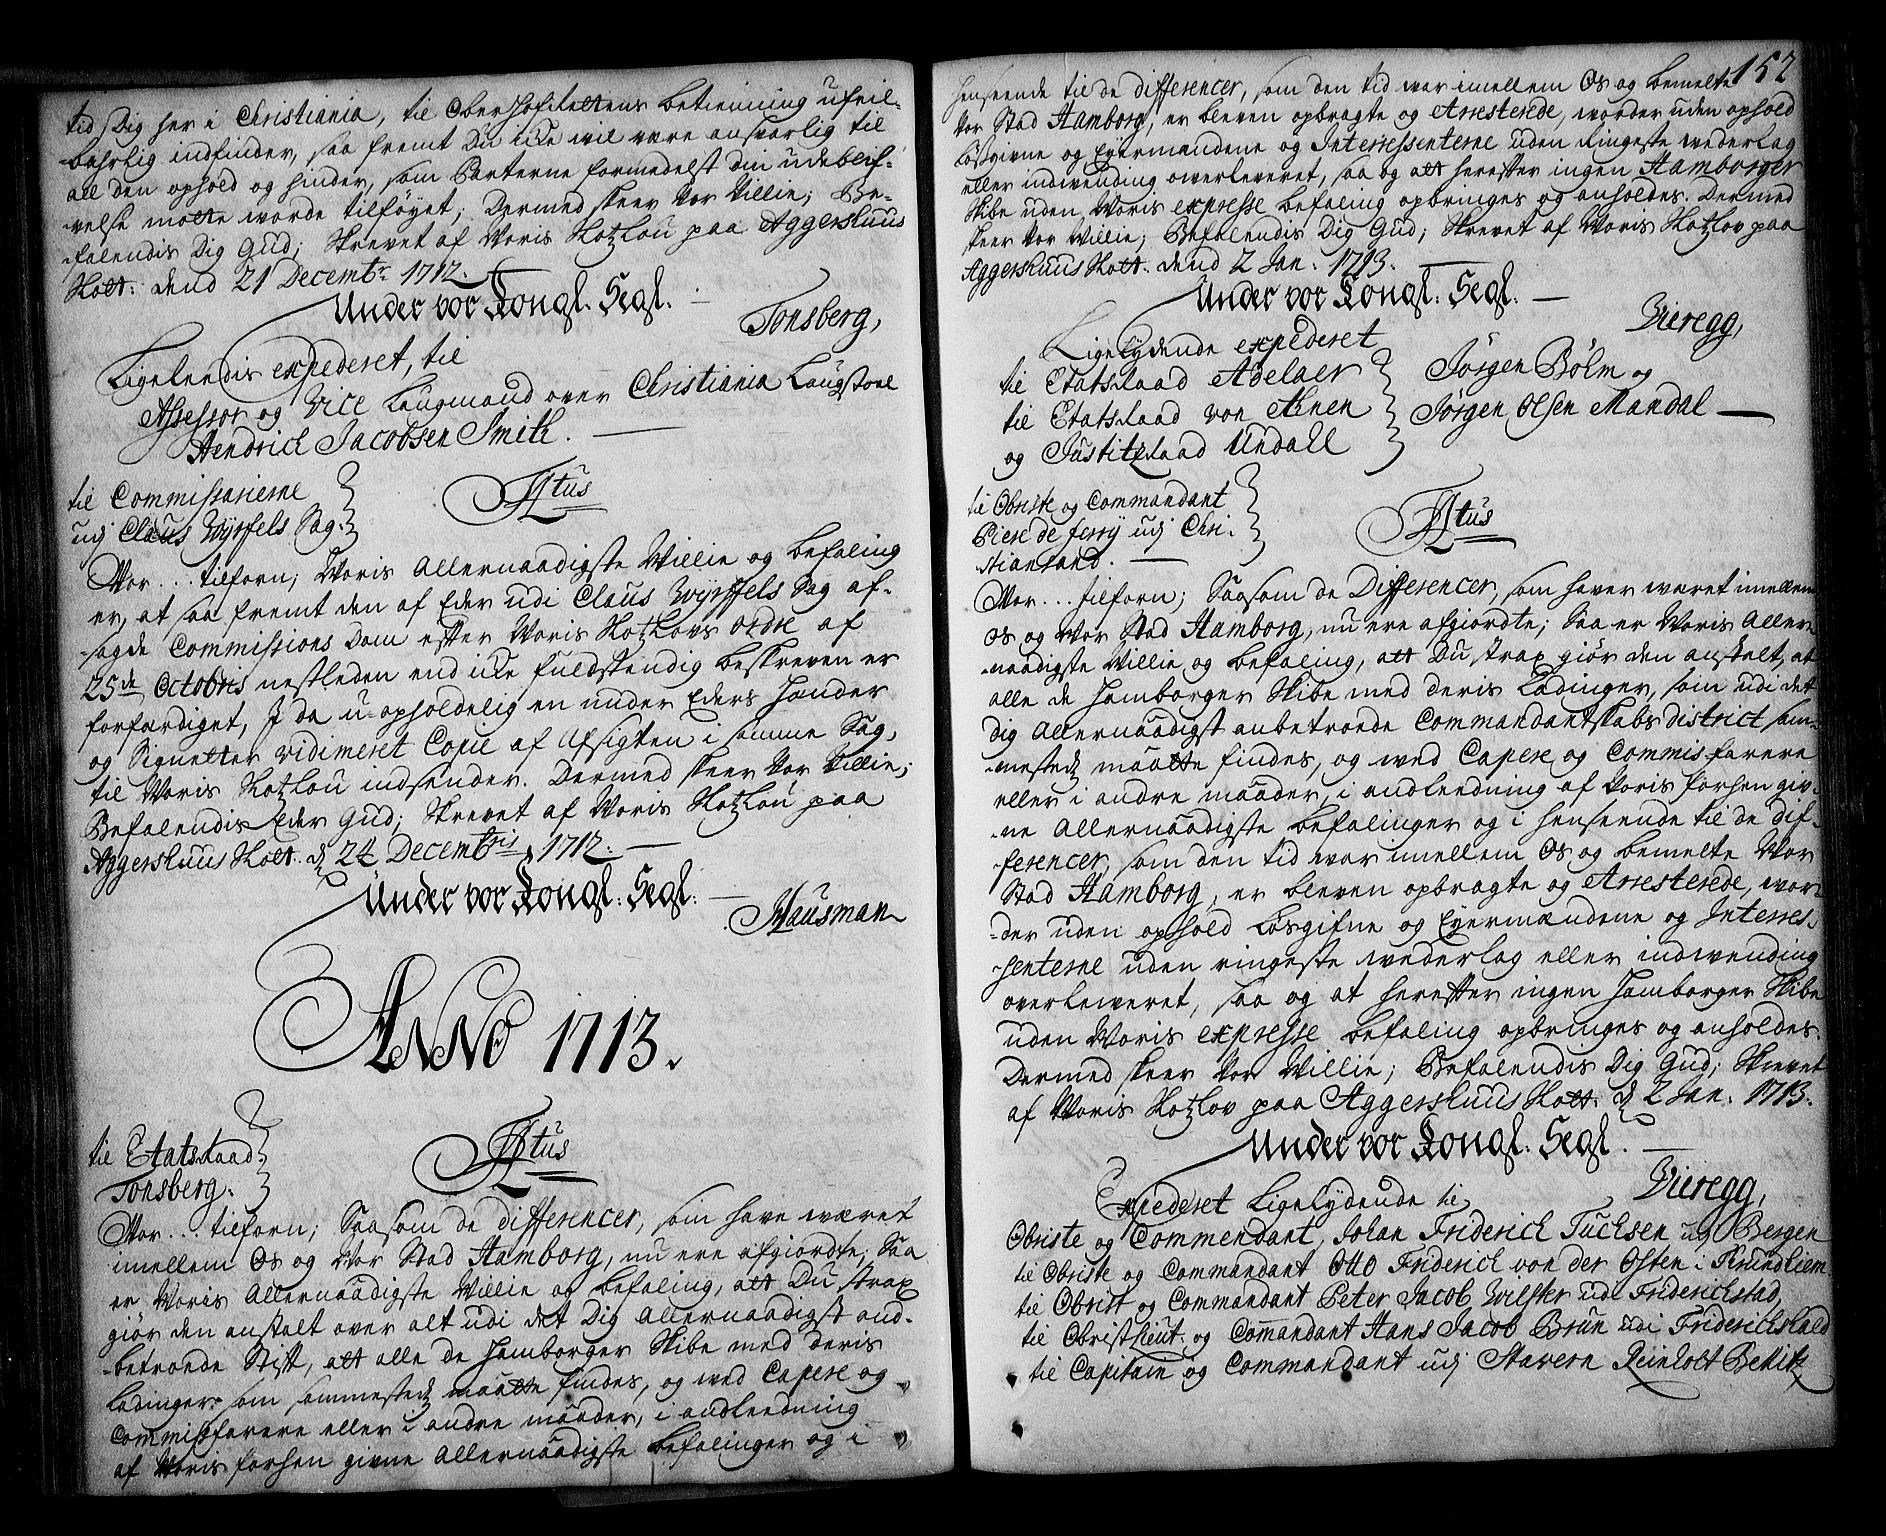 tid Dig her i Christiania, til Ober Hofrettens betienning ufeil-
bahrlig indfinder, saa fremt Du icke wil være ansvarlig til
all den ophold og hinder, som Parterne formedelst din udeblif-
welse motte worde tilføyet; Dermed skeer Vor Villie; Be-
falendis Dig Gud; Skrevet af Woris Slotzlou paa Aggershuus
Slott. dend 21 Decembr. 1712.
Under vor Kongl. Segl.
Tonsberg,
Ligelendis expederet, til
Assessor og Vice Laugmand over Christiania Laugstoel
Hendrich Jacobsen Smith.
til Commissarierne
udj Claus Wyrffels Sag.
F4tus
Wor ... tilforn; Woris Allernaadigste Willie og befaling
er, at saa fremt den af Eder udi Claus Wyrffels Sag af-
sagde Commissions Dom efter Woris Slotzlovs ordre af
25de Octobris nestleden end icke fuldstendig beskreven er
forfærdiget, I da u-opholdelig en under Eders Hænder
og Signetter vidimeret Copie af Afsigten i samme Sag,
til Woris Slotzlou indsender. Dermed skeer Vor Villie;
Befalendis Eder Gud; Skrevet af Woris Slotzlou paa
Aggershuus Slott. d 24 Decembris 1712.
Under vor Kongl. Segl.
Hausman
ANNO 1713.
til Etatsraad
Tonsberg.
F4tus
Wor ... tilforn; Saasom de differencer, som have wæret
imellem Os og Wor Stad Hamborg, nu ere afgiordte; Saa
er Woris Allernaadigste Willie og befaling, att Du strax
giør den anstalt over alt udi det Dig Allernaadigst and-
betroede Stift, att alle de Hamborger Skibe med deris
ladinger, som sammestedz maatte findes, og wed Capere og
Commissfarere eller i andre maader, i andleedning
af Woris forhen givne Allernaadigste befalinger og i
152
henseende til de differencer, som den tid war imellem Os og bemelte
Vor Stad Hamborg, er bleven opbragte og Arresterede, worder uden ophold
løsgivne og Eyermændene og Interessenterne uden Ringeste wederlag
eller indwending overleveret, saa og att herefter ingen Hamborger
Skibe uden Woris expresse befaling opbringes og anholdes. Dermed
skeer Vor Willie; Befalendis Dig Gud; Skrevet af Woris Slotzlov paa
Aggershuus Slott. dend 2 Jan: 1713.
Under vor Kongl. Segl.
Vieregg,
Ligelydende expederet
til Etatsraad Adelaer
Jørgen Bøhm og
til Etatsraad von Ahnen
Jørgen Olsen Mandal
og Justitzraad Undall
til Obriste og Commandant
Piere de ferry udj Chri-
stiansand.
F4tus
Wor ... tilforn; Saasom de Differencer, som haver wæret imellem
os og Wor Stad Hamborg, nu ere afgiordte; Saa er Woris Aller-
naadigste Willie og befaling, att Du strax giør den anstalt, at
alle de Hamborger Skibe med deris Ladinger, som udi det
Dig Allernaadigst anbetroede Commandantskabs district sam-
mestedz maatte findes, og wed Capere og Commisfarere
eller i andre maader, i andleedning af Voris forhen giv-
ne Allernaadigste befalinger og i henseende til de dif-
ferencer, som den tid war imellem Os og bemelte Wor
Stad Hamborg, er bleven opbragte og Arresterede, wor-
der uden ophold Løsgifne og Eyermændene og Interes-
senterne uden ringeste wederlag eller indwending
overleweret, saa og at herefter ingen Hamborger Skibe
uden Woris expresse befaling opbringes og anholdes.
Dermed skeer Vor Willie; Befalendis Dig Gud; Skrevet
af Woris Slotzlov paa Aggershuus Slott. d 2 Jan: 1713.
Under vor Kongl. Segl.
Vieregg,
Expederet Ligelydende til
Obriste og Commendant Johan Friderich Tuchsen udj Bergen
til Obriste og Commandant Otto Friderich von der Osten i Trundhiem
til Obrist og Commandant Peter Jacob Wilster udi Friderichstad,
til Obrist Lieut: og Commandant Hans Jacob Brun udi Friderichshald
til Capitain og Commandant udj Stavern Reinholt Bekitz